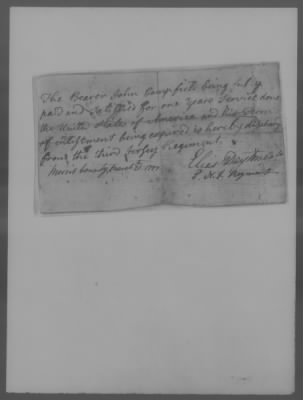 The Bearer John Campfield being fully
paid and Satisfied for one Years Service done
the United States of America and his Term
of enlistment being expired is hereby discharg
from the third Jersey Regiment
Morris County March
Elias Dayton